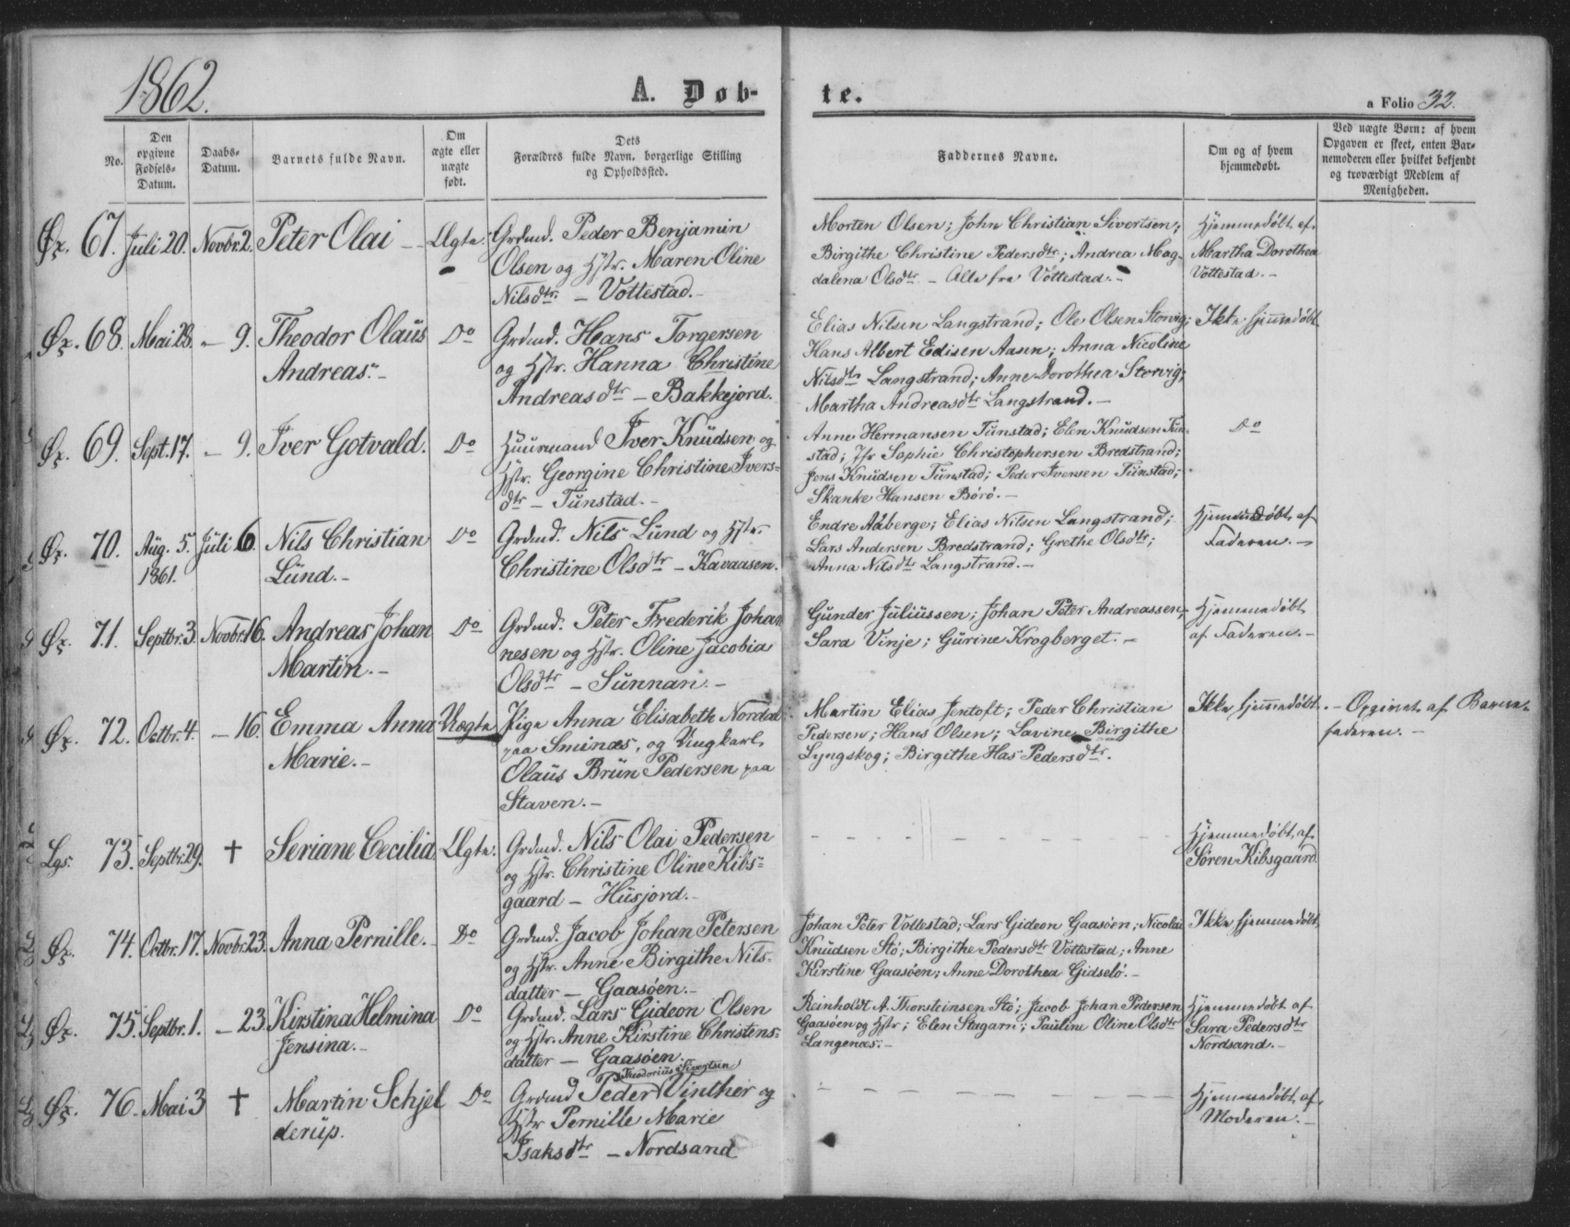 1862.
A. Døb-
te.
a Folio 32.
No.
Den
opgivne
Fødsels-
Datum.
Daabs-
Datum.
Barnets fulde Navn.
Om
ægte eller
uægte
født.
Dets
Forældres fulde Navn, borgerlige Stilling
og Opholdssted.
Faddernes Navne.
Om og af hvem
hjemmedøbt.
Ved uægte Børn: af hvem
Opgaven er skeet, enten Bar-
nemoderen eller hvilket bekjendt
og troværdigt Medlem af
Menigheden.
Øx. 67. Juli 20. Novbr. 2. Peter Olai — Ægte. Grdmd. Peder Benjamin
Olsen og Hstr. Maren Oline
Nilsdtr. — Vottestad.—
Morten Olsen; John Christian Sivertsen;
Birgithe Christine Pedersdtr; Andrea Mag-
dalena Olsdtr — Alle fra Vottestad.—
Hjemmedøbt af
Martha Dorothea
Vottestad.—
Øx. 68. Mai 28. — 9. Theodor Olaüs
Andreas.— Do Grdmd. Hans Torgersen
og Hstr. Hanna Christine
Andreasdtr — Bakkejord.
Elias Nilsen Langstrand; Ole Olsen Storvig;
Hans Albert Edisen Aasen; Anna Nicoline
Nilsdtr Langstrand; Anne Dorothea Storvig;
Martha Andreasdtr Langstrand.—
Ikke hjemmedøbt
Øx. 69. Sept. 17. — 9. Iver Gotvald. Do Huusmand Iver Knüdsen og
Hstr. Georgine Christine Ivers-
dtr — Tünstad.—
Anne Hermansen Tünstad; Elen Knüdsen Tün-
stad; Jfr Sophie Christophersen Bredstrand;
Jens Knüdsen Tünstad; Peder Iversen Tünstad;
Skanke Hansen Börö.—
Do
Øx. 70. Aüg. 5.
1861. Jüli 6. Nils Christian
Lünd.— Do Grdmd. Nils Lünd og Hstr.
Christine Olsdtr — Kavaasen.
Endre Aaberge; Elias Nilsen Langstrand;
Lars Andersen Bredstrand; Grethe Olsdtr;
Anna Nilsdtr Langstrand.—
Hjemmedøbt af
Faderen.—
Øx. 71. Septbr. 3. Novbr. 16. Andreas Johan
Martin.— Do Grdmd. Peter Frederik Johan
nesen og Hstr. Oline Jacobia
Olsdtr — Sünnan.—
Günder Jüliüssen; Johan Peter Andreassen;
Sara Vinje; Gürine Krogberget.—
Hjemmedøbt
af Faderen.—
Øx. 72. Octbr. 4. — 16. Emma Anna
Marie.— Uægte Pige Anna Elisabeth Nordad
paa Sminæs, og Ungkarl
Olaüs Brün Pedersen paa
Staven.—
Martin Elias Jentoft; Peder Christian
Pedersen; Hans Olsen; Lavine Birgithe
Lyngskog; Birgithe Has Pedersdtr.
Ikke hjemmedøbt.— Opgivet af Barne-
faderen.—
Lgs. 73. Septbr. 29. † Seriane Cecilia Ægte. Grdmd. Nils Olai Pedersen
og Hstr. Christine Oline Kibs-
gaard — Hüsjord.—
Hjemmedøbt af
Søren Kibsgaard
Øx. 74. Octbr. 17. Novbr. 23. Anna Pernille.— Do Grdmd. Jacob Johan Petersen
og Hstr. Anne Birgithe Nils-
datter — Gaasöen.—
Johan Peter Vottestad; Lars Gideon Gaasöen; Nicolai
Knüdsen Stö; Birgithe Pedersdtr Vottestad; Anne
Kirstine Gaasöen; Anne Dorothea Gidselö.—
Ikke hjemmedøbt
Øx. 75. Septbr. 1. — 23. Kirstina Helmina
Jensina.— Do Grdmd. Lars Gideon Olsen
og Hstr. Anne Kirstine Christens-
datter — Gaasöen.
Reinholdt A. Thorsteinsen Stö; Jacob Johan Pedersen
Gaasöen og Hstr; Elen Stugarn; Pauline Oline Olsdtr
Langenæs.—
Hjemmedøbt af
Sara Pedersdtr
Nordsand.—
Øx. 76. Mai 3 † Martin Schjel
derüp. Do Theodoriüs Sivertsen
Grdmd Peder Vinther og
Hstr Pernille Marie
Isaksdtr — Nordsand
Hjemmedøbt af
Moderen.—